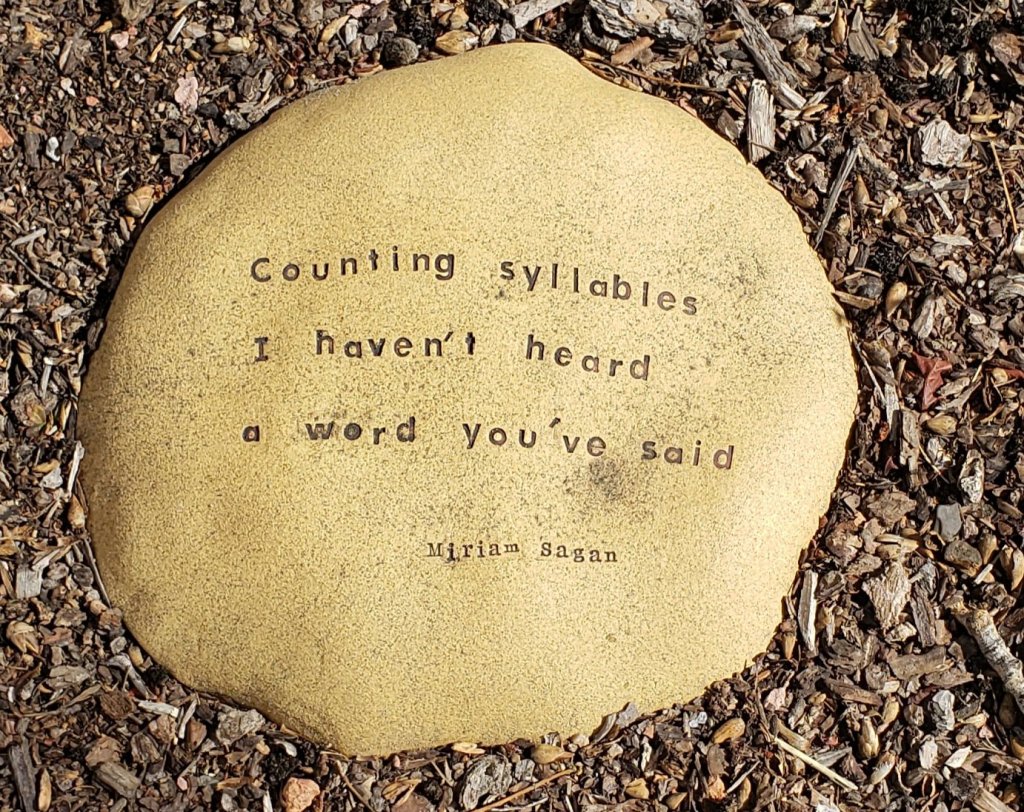 Counting syllables
I haven't heard
a word you've said
Miriam Sagan